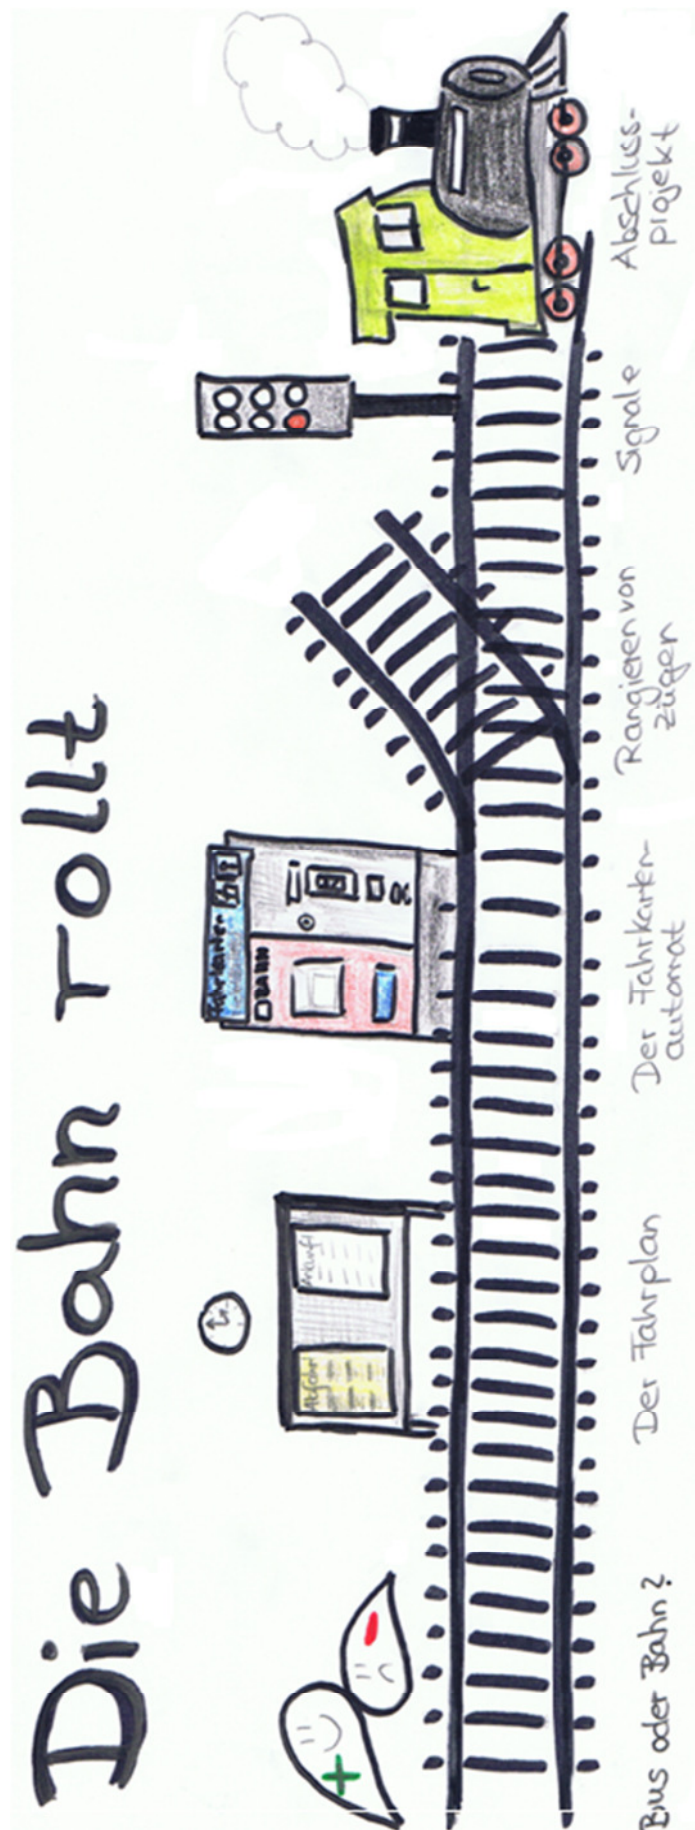 Die Bahn rollt
Fahrkarten
BAHN
Abfahrt
Ankunft
Bus oder Bahn?
Der Fahrplan
Der Fahrkarten-
automat
Rangieren von
Zügen
Signale
Abschluss-
projekt